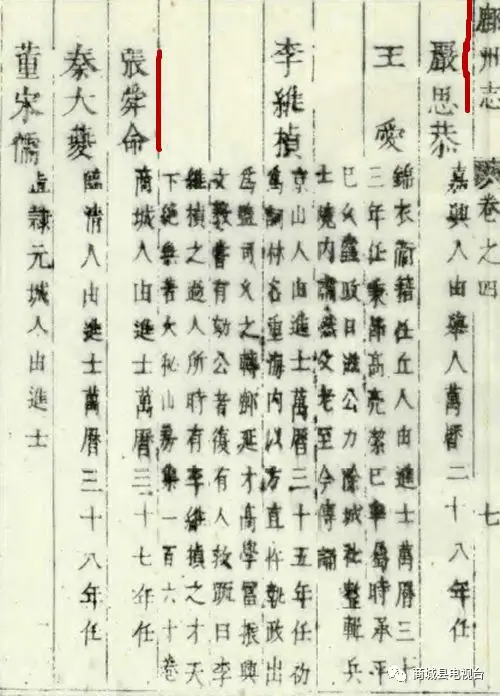 鄜州志 卷之四 七
嚴思恭 嘉興人由舉人萬曆二十八年任
王愛 錦衣衛籍任丘人由進士萬曆三十
三年任秉節高亮潔己率屬時承平
已久蠹政日滋公力除城社整輯兵
士境内肅然父老至今傳誦
李維楨 京山人由進士萬曆三十五年任初
為詞林名重海内以方直忤執政出
為監司久之轉鄜延才高學富振興
文教嘗有劾公者復有人救疏曰李
維楨之過人所時有李維楨之才天
下絶無著大祕山房集一百六十卷
張舜命 商城人由進士萬曆三十七年任
秦大夔 臨清人由進士萬曆三十八年任
董宋儒 直隸元城人由進士
商城县电视台